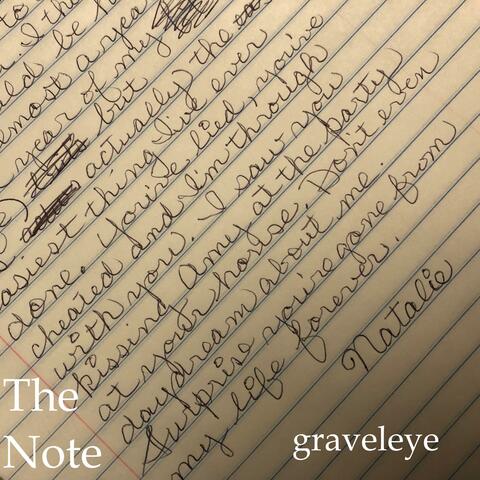 I
be
almost a
year of my
but the
actually
easiest thing I've ever
done. You've lied, you've
cheated and I'm through
with you. I saw you
kissing Amy at the party
at your house. Don't even
daydream about me.
Surprise you're gone from
my life forever.
Natalie
The
Note
graveleye